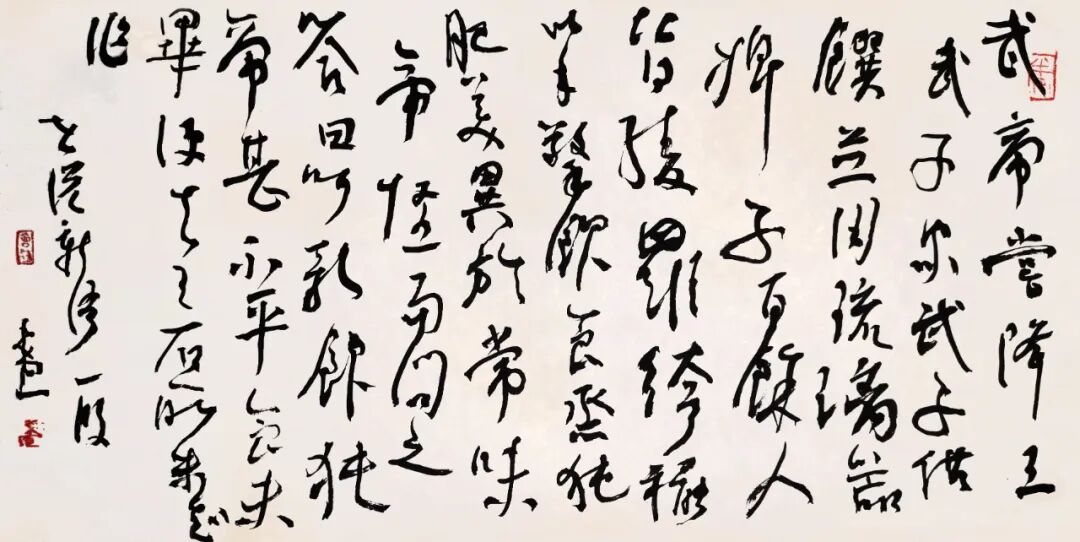 武帝嘗降王
武子家武子供
饌並用琉璃器
婢子百餘人
皆綾羅絝
以手擎飲食烝㹠
肥美異於常味
帝怪而問之
答曰以人乳飲㹠
帝甚不平食未
畢便去王石所未知
作
世說新語一段